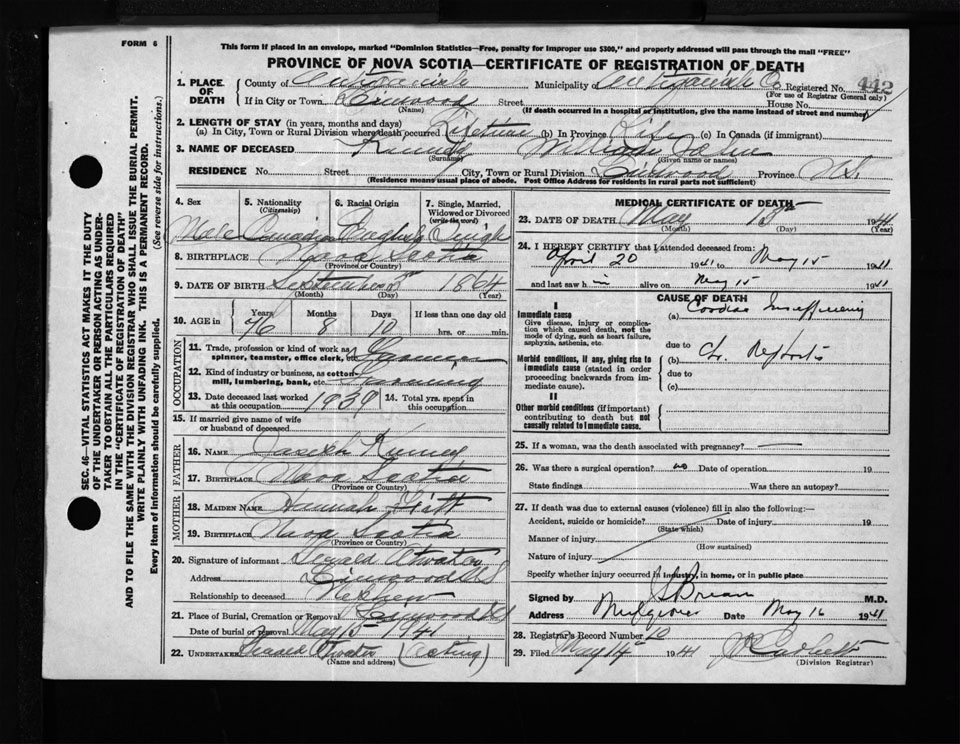 FORM 6
This form if placed in an envelope, marked "Dominion Statistics—Free, penalty for improper use $300," and properly addressed will pass through the mail "FREE"
PROVINCE OF NOVA SCOTIA—CERTIFICATE OF REGISTRATION OF DEATH
442
1. PLACE OF DEATH
County of Antigonish Municipality of Antigonish Co. Registered No.
(For use of Registrar General only)
If in City or Town Linwood Street House No.
(Name) (If death occurred in a hospital or institution, give the name instead of street and number)
2. LENGTH OF STAY (in years, months and days)
(a) In City, Town or Rural Division where death occurred Lifetime (b) In Province Life (c) In Canada (if immigrant)
3. NAME OF DECEASED William John
(Surname) (Given name or names)
RESIDENCE No. Street City, Town or Rural Division Linwood Province N.S.
(Residence means usual place of abode. Post Office Address for residents in rural parts not sufficient)
4. Sex
5. Nationality (Citizenship)
6. Racial Origin
7. Single, Married, Widowed or Divorced (write the word)
Male Canadian English Single
8. BIRTHPLACE Nova Scotia
(Province or Country)
9. DATE OF BIRTH September 1864
(Month) (Day) (Year)
10. AGE in
Years Months Days If less than one day old
76 8 10 hrs. or min.
OCCUPATION
11. Trade, profession or kind of work as spinner, teamster, office clerk, etc. Farmer
12. Kind of industry or business, as cotton-mill, lumbering, bank, etc. Farming
13. Date deceased last worked at this occupation 1939
14. Total yrs. spent in this occupation
15. If married give name of wife or husband of deceased
FATHER
16. NAME
17. BIRTHPLACE Nova Scotia
(Province or Country)
MOTHER
18. MAIDEN NAME Hannah
19. BIRTHPLACE Nova Scotia
(Province or Country)
20. Signature of informant Gerald Atwater
Address Linwood N S
Relationship to deceased Nephew
21. Place of Burial, Cremation or Removal Linwood N S
Date of burial or removal May 15 1941
22. UNDERTAKER Gerald Atwater (Acting)
(Name and address)
MEDICAL CERTIFICATE OF DEATH
23. DATE OF DEATH May 1941
(Month) (Day) (Year)
24. I HEREBY CERTIFY that I attended deceased from:
April 20 1941 to May 15 1941
and last saw h im alive on May 15 1941
CAUSE OF DEATH
I
Immediate cause
Give disease, injury or complication which caused death, not the mode of dying, such as heart failure, asphyxia, asthenia, etc.
(a) Cardiac Insufficiency
due to
Morbid conditions, if any, giving rise to immediate cause (stated in order proceeding backwards from immediate cause).
(b) Chr. Nephritis
due to
(c)
II
Other morbid conditions (if important) contributing to death but not causally related to immediate cause.
25. If a woman, was the death associated with pregnancy?
26. Was there a surgical operation? no Date of operation 19
State findings Was there an autopsy?
27. If death was due to external causes (violence) fill in also the following:—
Accident, suicide or homicide? Date of injury 19
(State which)
Manner of injury
(How sustained)
Nature of injury
Specify whether injury occurred in industry, in home, or in public place
Signed by M.D.
Address Mulgrave Date May 16 1941
28. Registrar's Record Number
29. Filed May 1941
(Division Registrar)
SEC. 46—VITAL STATISTICS ACT MAKES IT THE DUTY
OF THE UNDERTAKER OR PERSON ACTING AS UNDER-
TAKER TO OBTAIN ALL THE PARTICULARS REQUIRED
IN THE "CERTIFICATE OF REGISTRATION OF DEATH"
AND TO FILE THE SAME WITH THE DIVISION REGISTRAR WHO SHALL ISSUE THE BURIAL PERMIT.
WRITE PLAINLY WITH UNFADING INK. THIS IS A PERMANENT RECORD.
Every item of information should be carefully supplied. (See reverse side for instructions.)